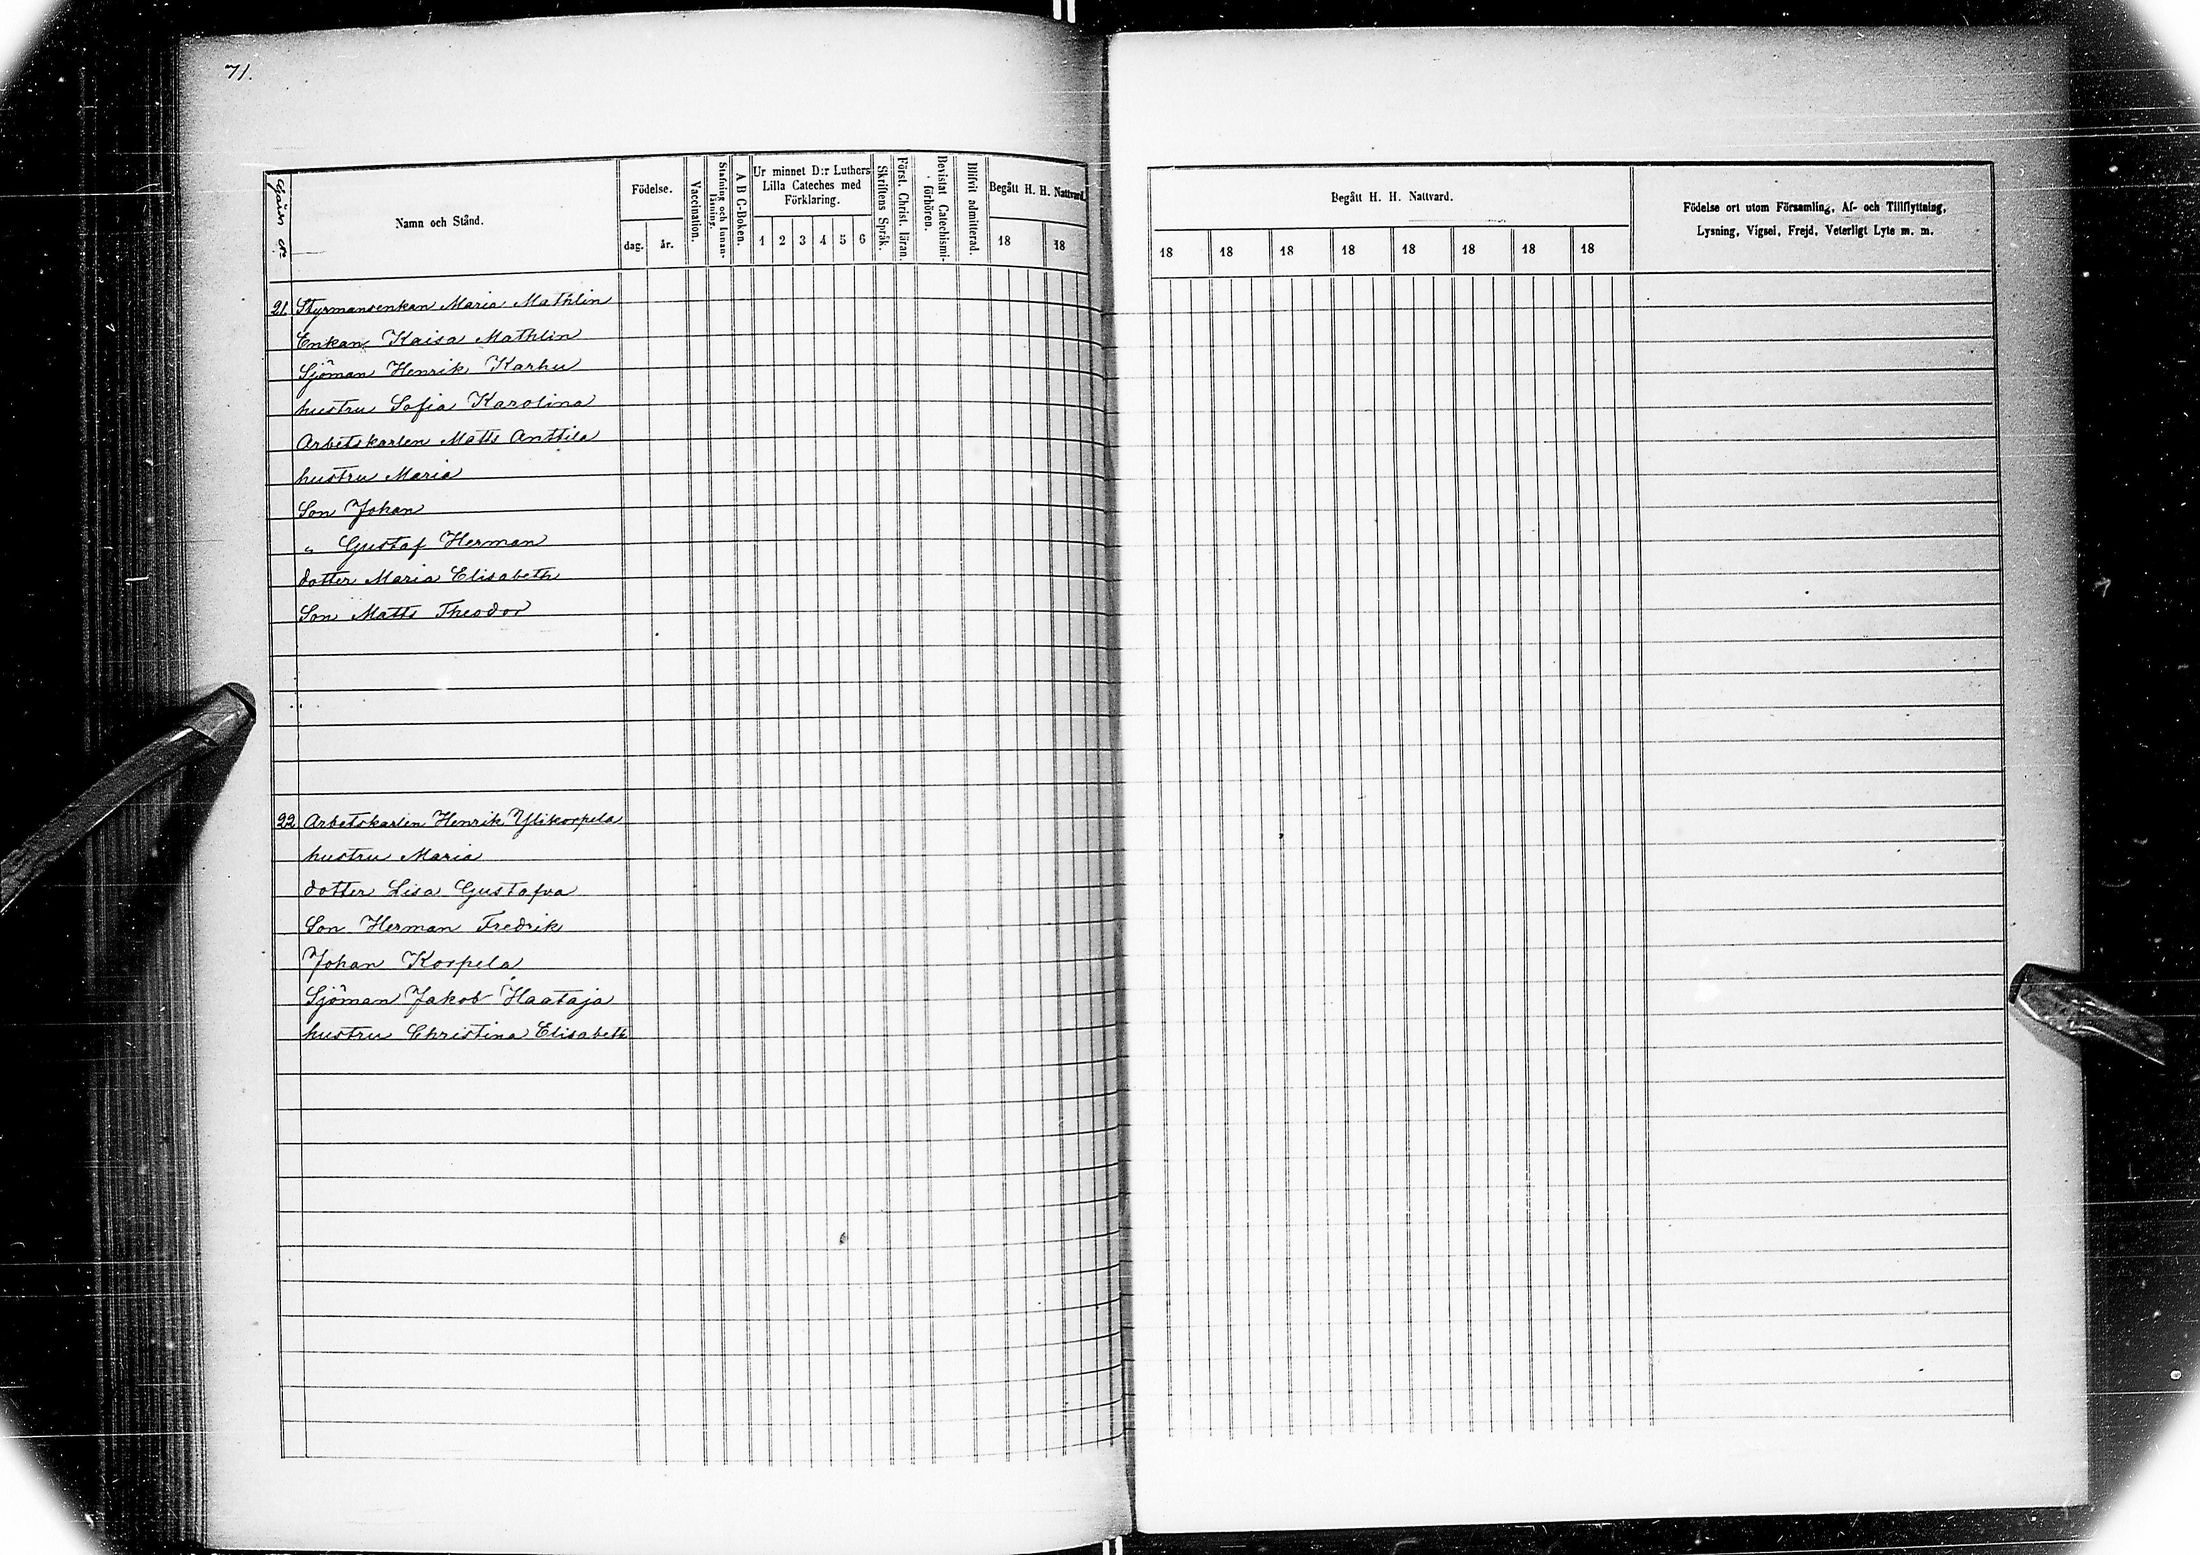 71.
Gård №
Namn och Stånd.
Födelse.
dag.
år.
Vaccination.
Stafning och Innan-
läsning.
A B C-Boken.
Ur minnet D:r Luthers
Lilla Cateches med
Förklaring.
1 2 3 4 5 6
Skriftens Språk.
Först. Christ. läran.
Bevistat Catechismi-
förhören.
Blifvit admitterad.
Begått H. H. Nattvard.
18 18
21. Styrmansenkan Maria Mathlin
Enkan Kaisa Mathlin
Sjöman Henrik Karhu
hustru Sofia Karolina
Arbetskarlen Matts Anttila
hustru Maria
Son Johan
" Gustaf Herman
dotter Maria Elisabeth
Son Matts Theodor
22 Arbetskarlen Henrik Ylikorpela
hustru Maria
dotter Lisa Gustafva
Son Herman Fredrik
Johan Korpela
Sjöman Jakob Haataja
hustru Christina Elisabeth
Begått H. H. Nattvard.
18 18 18 18 18 18 18 18
Födelse ort utom Församling, Af- och Tillflyttning,
Lysning, Vigsel, Frejd, Veterligt Lyte m. m.